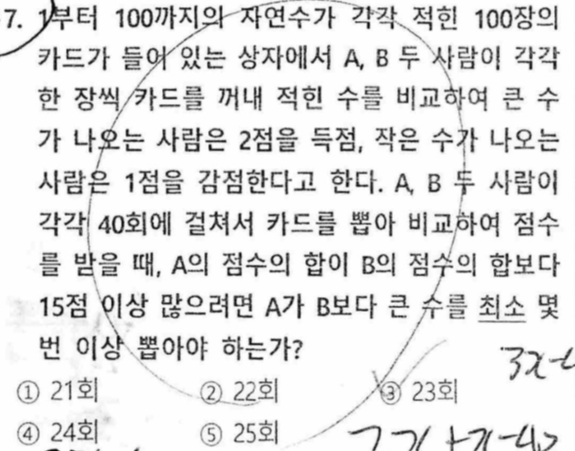 7. 1부터 100까지의 자연수가 각각 적힌 100장의
카드가 들어 있는 상자에서 A, B 두 사람이 각각
한 장씩 카드를 꺼내 적힌 수를 비교하여 큰 수
가 나오는 사람은 2점을 득점, 작은 수가 나오는
사람은 1점을 감점한다고 한다. A, B 두 사람이
각각 40회에 걸쳐서 카드를 뽑아 비교하여 점수
를 받을 때, A의 점수의 합이 B의 점수의 합보다
15점 이상 많으려면 A가 B보다 큰 수를 최소 몇
번 이상 뽑아야 하는가?
① 21회 ② 22회 ③ 23회
④ 24회 ⑤ 25회